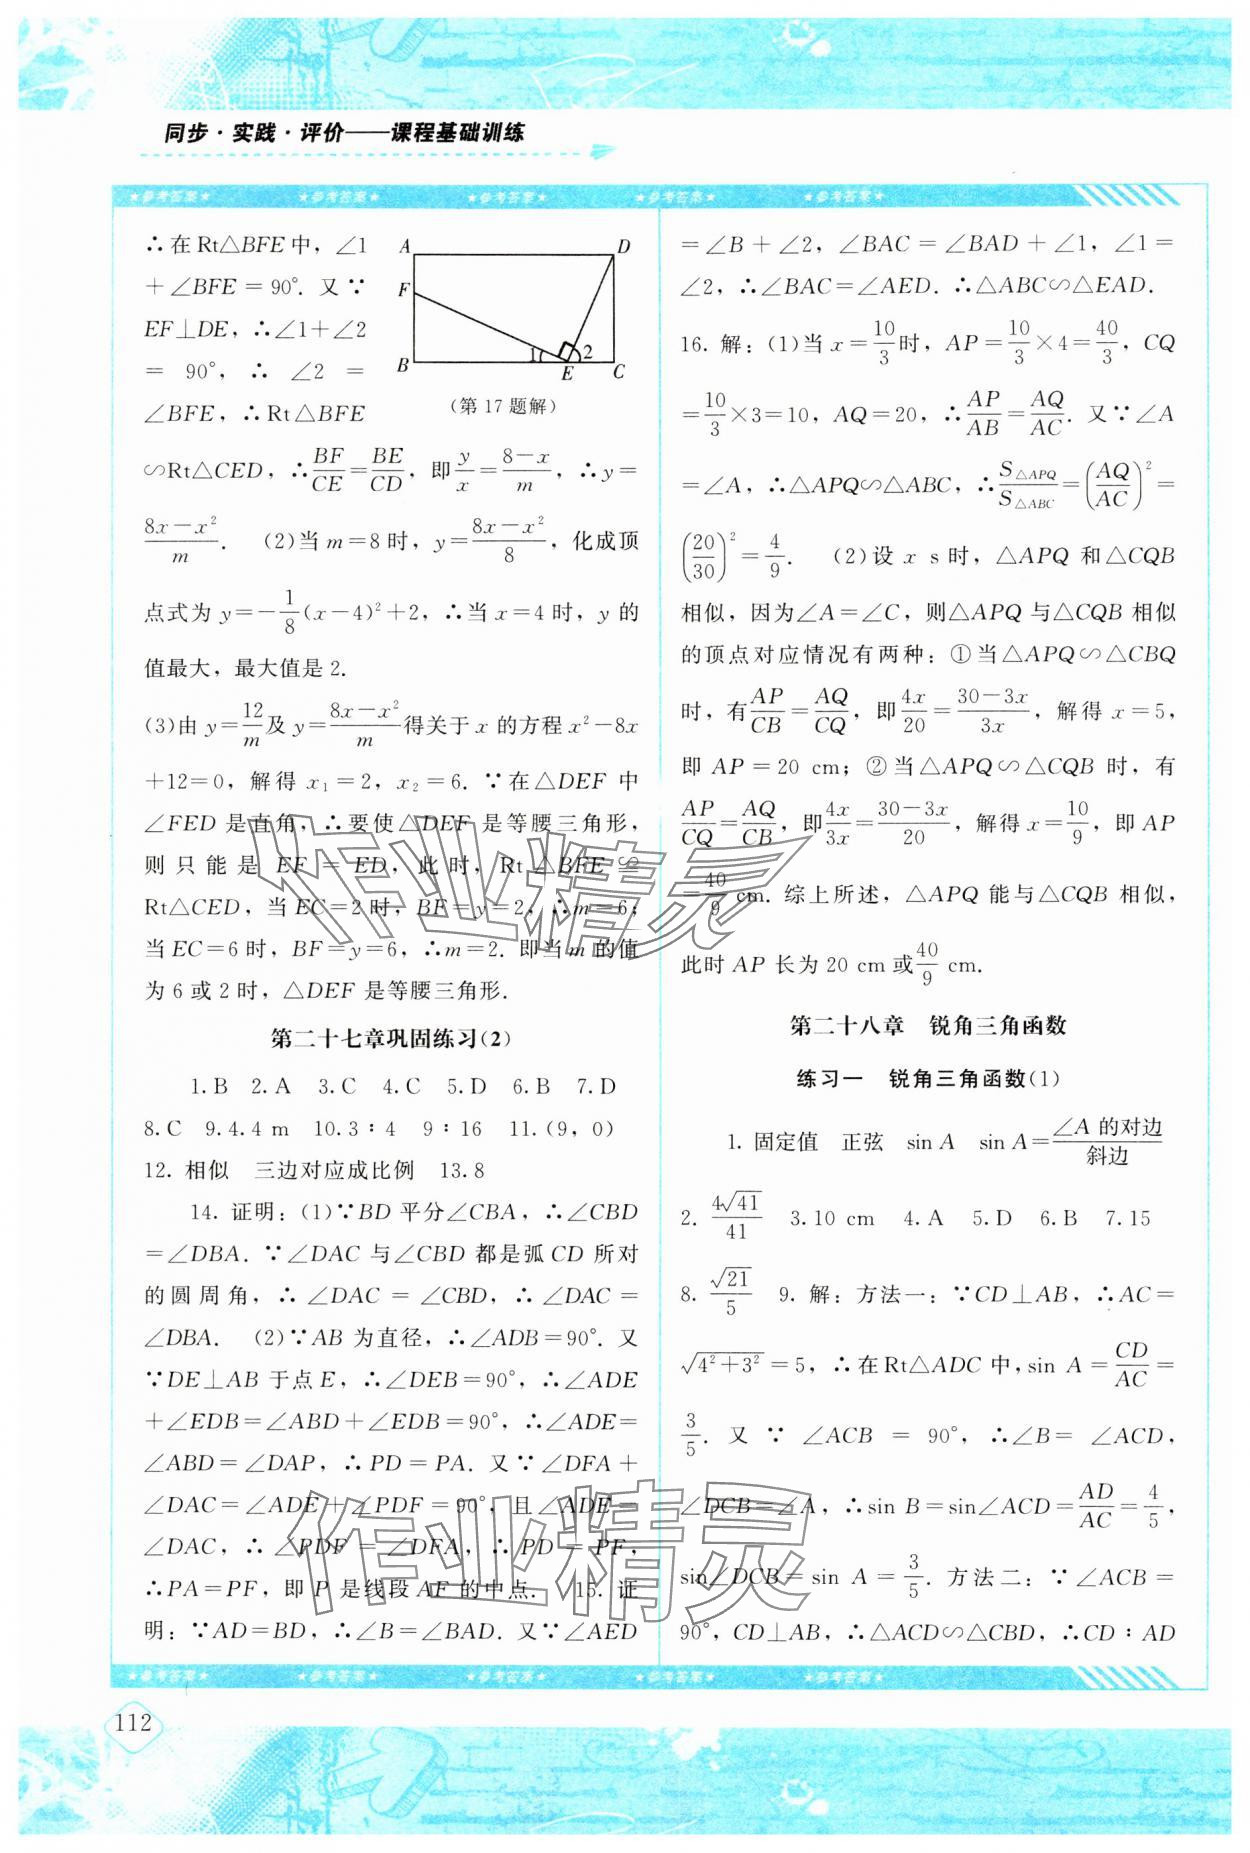 同步·实践·评价——课程基础训练
★参考答案★ ★参考答案★ ★参考答案★ ★参考答案★ ★参考答案★
∴在Rt△BFE中，∠1
＋∠BFE＝90°. 又∵
EF⊥DE，∴∠1＋∠2
＝ 90°，∴ ∠2 ＝
∠BFE，∴Rt△BFE
A D F B 1 2 E C
(第17题解)
∽Rt△CED，∴BF/CE＝BE/CD，即y/x＝(8－x)/m，∴y＝
(8x－x²)/m. (2)当m＝8时，y＝(8x－x²)/8，化成顶
点式为y＝－1/8(x－4)²＋2，∴当x＝4时，y的
值最大，最大值是2.
(3)由y＝12/m及y＝(8x－x²)/m得关于x的方程x²－8x
＋12＝0，解得x₁＝2，x₂＝6. ∵在△DEF中
∠FED是直角，∴要使△DEF是等腰三角形，
则只能是EF＝ED，此时，Rt△BFE≌
Rt△CED，当EC＝2时，BF＝y＝2，∴m＝6；
当EC＝6时，BF＝y＝6，∴m＝2. 即当m的值
为6或2时，△DEF是等腰三角形.
第二十七章巩固练习(2)
1.B 2.A 3.C 4.C 5.D 6.B 7.D
8.C 9.4.4 m 10.3∶4 9∶16 11.(9，0)
12. 相似 三边对应成比例 13.8
14. 证明：(1)∵BD平分∠CBA，∴∠CBD
＝∠DBA. ∵∠DAC与∠CBD都是弧CD所对
的圆周角，∴∠DAC＝∠CBD，∴∠DAC＝
∠DBA. (2)∵AB为直径，∴∠ADB＝90°. 又
∵DE⊥AB于点E，∴∠DEB＝90°，∴∠ADE
＋∠EDB＝∠ABD＋∠EDB＝90°，∴∠ADE＝
∠ABD＝∠DAP，∴PD＝PA. 又∵∠DFA＋
∠DAC＝∠ADE＋∠PDF＝90°，且∠ADE＝
∠DAC，∴∠PDF＝∠DFA，∴PD＝PF，
∴PA＝PF，即P是线段AF的中点. 15. 证
明：∵AD＝BD，∴∠B＝∠BAD. 又∵∠AED
＝∠B＋∠2，∠BAC＝∠BAD＋∠1，∠1＝
∠2，∴∠BAC＝∠AED. ∴△ABC∽△EAD.
16. 解：(1)当x＝10/3时，AP＝10/3×4＝40/3，CQ
＝10/3×3＝10，AQ＝20，∴AP/AB＝AQ/AC. 又∵∠A
＝∠A，∴△APQ∽△ABC，∴S△APQ/S△ABC＝(AQ/AC)²＝
(20/30)²＝4/9. (2)设x s时，△APQ和△CQB
相似，因为∠A＝∠C，则△APQ与△CQB相似
的顶点对应情况有两种：①当△APQ∽△CBQ
时，有AP/CB＝AQ/CQ，即4x/20＝(30－3x)/3x，解得x＝5，
即AP＝20 cm；②当△APQ∽△CQB时，有
AP/CQ＝AQ/CB，即4x/3x＝(30－3x)/20，解得x＝10/9，即AP
＝40/9 cm. 综上所述，△APQ能与△CQB相似，
此时AP长为20 cm或40/9 cm.
第二十八章 锐角三角函数
练习一 锐角三角函数(1)
1. 固定值 正弦 sin A sin A＝∠A的对边/斜边
2. 4√41/41 3.10 cm 4.A 5.D 6.B 7.15
8. √21/5 9. 解：方法一：∵CD⊥AB，∴AC＝
√(4²＋3²)＝5，∴在Rt△ADC中，sin A＝CD/AC＝
3/5. 又∵∠ACB＝90°，∴∠B＝∠ACD，
∠DCB＝∠A，∴sin B＝sin∠ACD＝AD/AC＝4/5，
sin∠DCB＝sin A＝3/5. 方法二：∵∠ACB＝
90°，CD⊥AB，∴△ACD∽△CBD，∴CD∶AD
作业精灵
作业精灵
★参考答案★ ★参考答案★ ★参考答案★ ★参考答案★ ★参考答案★
112